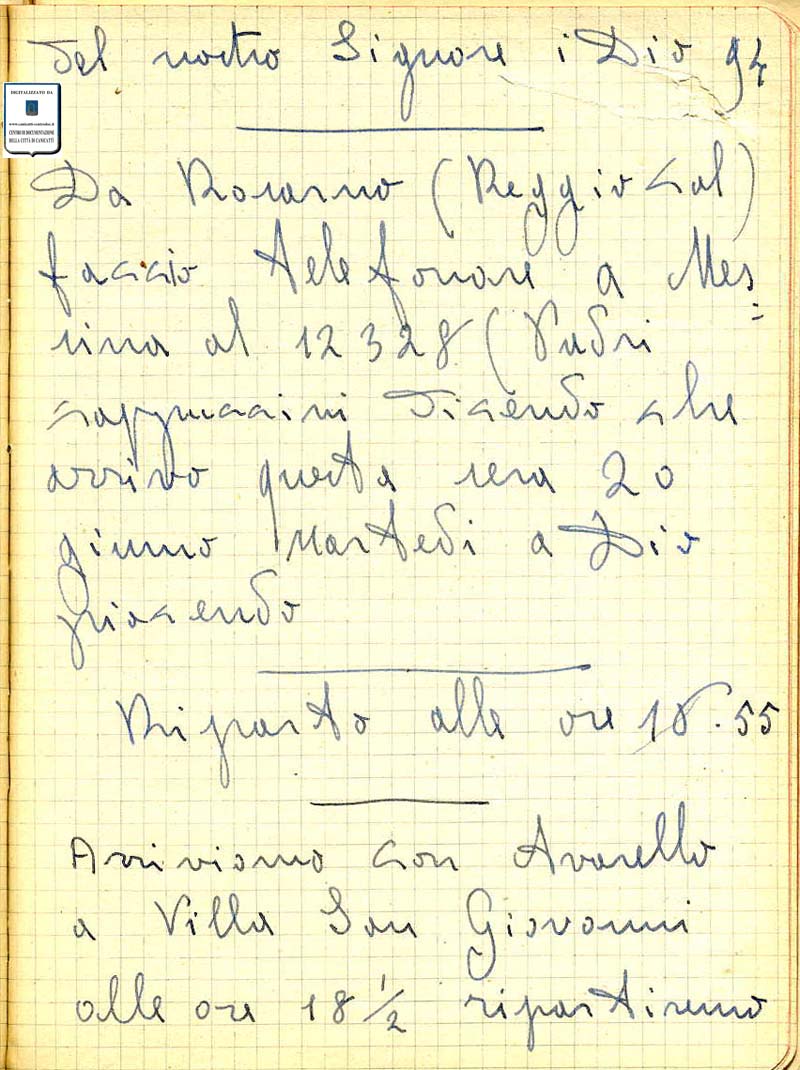 del nostro Signore i Dio 94
DIGITALIZZATO DA
CENTRO DI DOCUMENTAZIONE
DELLA CITTÀ DI CANICATTÌ
Da Rosarno (Reggio Cal)
faccio telefonare a Mes=
sina al 12328 (Padri
cappuccini dicendo che
arrivo questa sera 20
giunno Martedi a Dio
piacendo
Riparto alle ore 18.55
Arriviamo con Avarello
a Villa San Giovanni
alle ore 18 1/2 ripartiremo